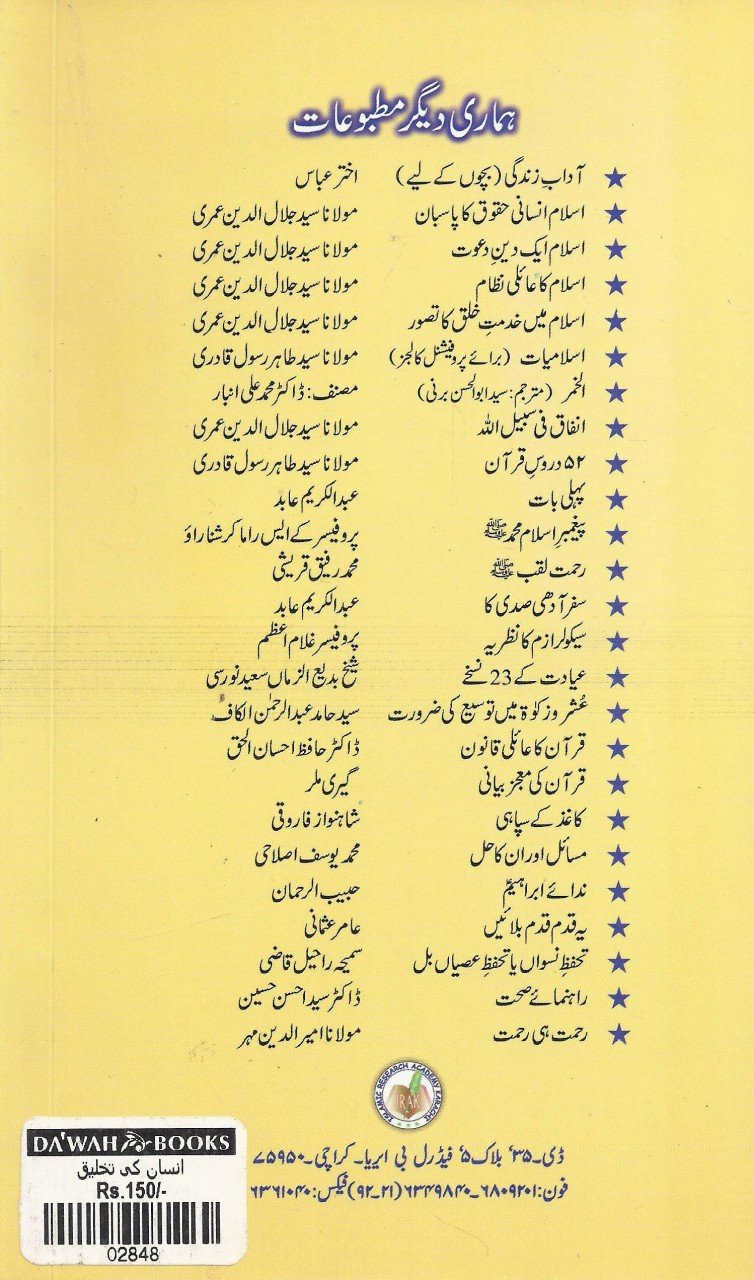 ہماری دیگر مطبوعات
★ آدابِ زندگی (بچوں کے لیے) اختر عباس
★ اسلام انسانی حقوق کا پاسبان مولانا سید جلال الدین عمری
★ اسلام ایک دینِ دعوت مولانا سید جلال الدین عمری
★ اسلام کا عائلی نظام مولانا سید جلال الدین عمری
★ اسلام میں خدمتِ خلق کا تصور مولانا سید جلال الدین عمری
★ اسلامیات (برائے پروفیشنل کالجز) مولانا سید طاہر رسول قادری
★ الخمر (مترجم: سید ابوالحسن برنی) مصنف: ڈاکٹر محمد علی انبار
★ انفاق فی سبیل اللہ مولانا سید جلال الدین عمری
★ ۵۲ دروسِ قرآن مولانا سید طاہر رسول قادری
★ پہلی بات عبدالکریم عابد
★ پیغمبرِ اسلام محمد ﷺ پروفیسر کے ایس راما کرشنا راؤ
★ رحمت لقب ﷺ محمد رفیق قریشی
★ سفر آدھی صدی کا عبدالکریم عابد
★ سیکولرازم کا نظریہ پروفیسر غلام اعظم
★ عیادت کے 23 نسخے شیخ بدیع الزماں سعید نورسی
★ عُشر و زکوٰۃ میں توسیع کی ضرورت سید حامد عبدالرحمٰن الکاف
★ قرآن کا عائلی قانون ڈاکٹر حافظ احسان الحق
★ قرآن کی معجز بیانی گیری ملر
★ کاغذ کے سپاہی شاہنواز فاروقی
★ مسائل اور ان کا حل محمد یوسف اصلاحی
★ ندائے ابراہیمؑ حبیب الرحمان
★ یہ قدم قدم بلائیں عامر عثمانی
★ تحفظِ نسواں یا تحفظِ عصیاں بل سمیحہ راحیل قاضی
★ راہنمائے صحت ڈاکٹر سید احسن حسین
★ رحمت ہی رحمت مولانا امیر الدین مہر
ISLAMIC RESEARCH ACADEMY KARACHI
IRAK
ڈی۔۳۵، بلاک ۵، فیڈرل بی ایریا۔ کراچی۔۷۵۹۵۰
فون: ۶۸۰۹۲۰۱۔۶۳۴۹۸۴۰ (۲۱۔۹۲) فیکس: ۶۳۶۱۰۴۰
DA'WAH BOOKS
انسان کی تخلیق
Rs.150/-
02848